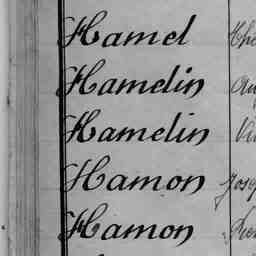 Hamel
Hamelin
Hamelin
Hamon
Hamon